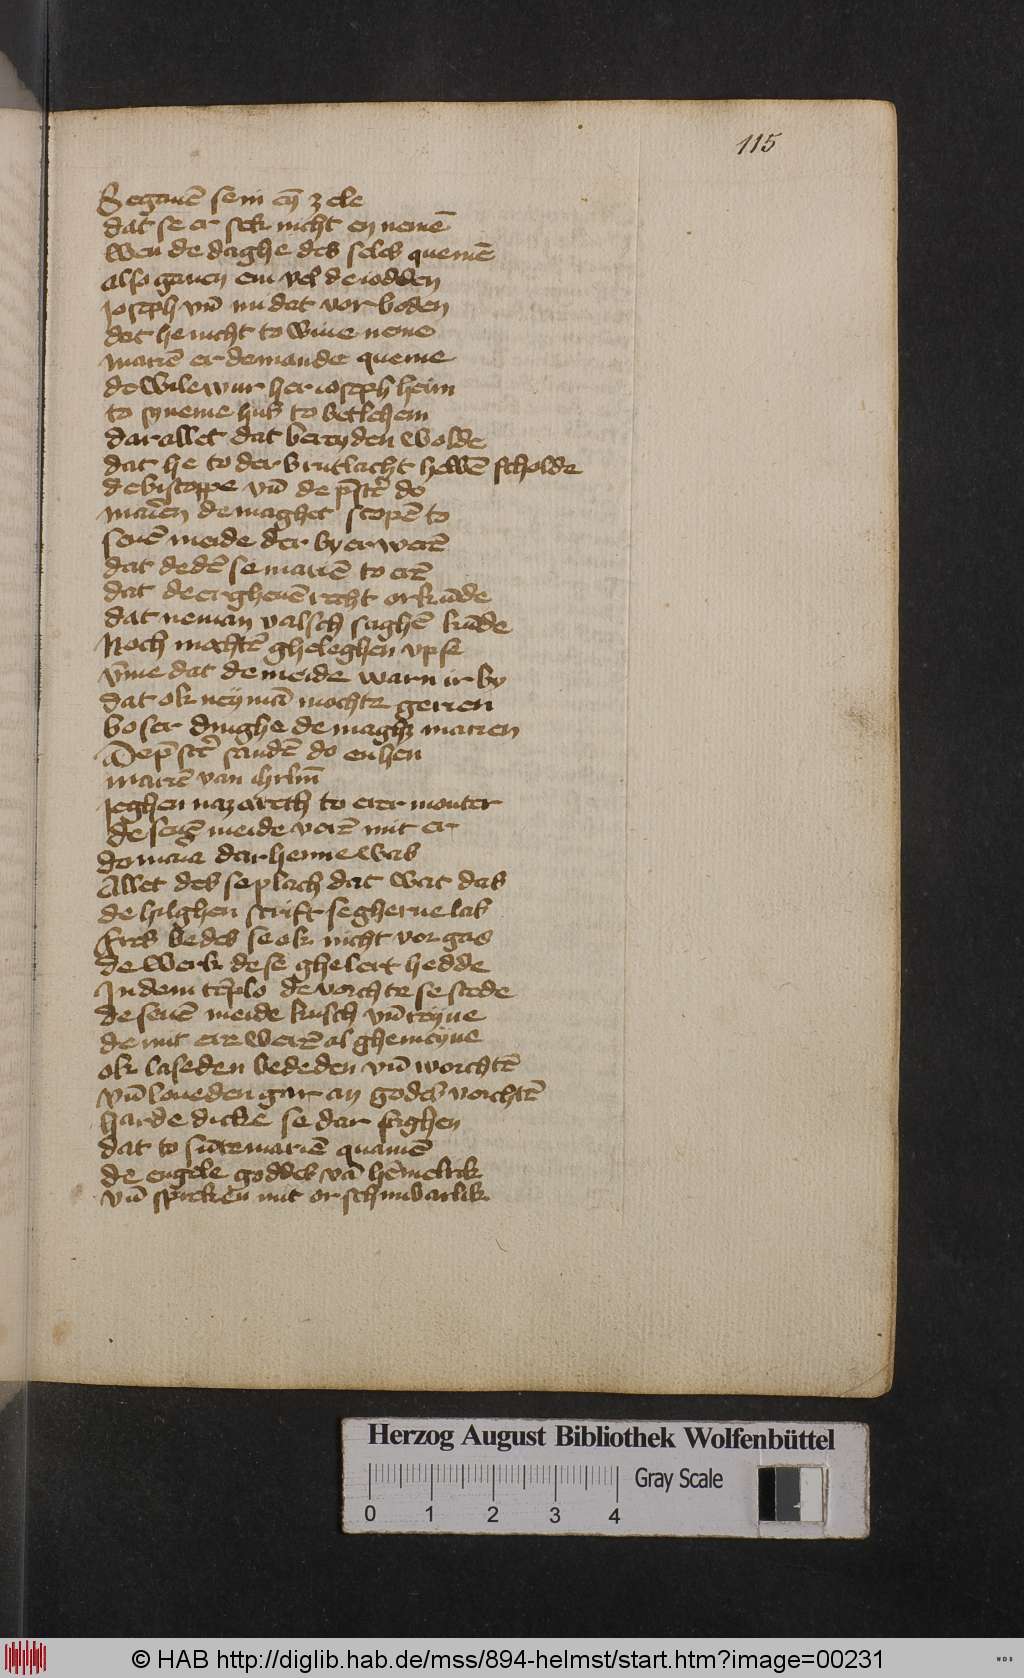 115
Se gauē se in eȳ zele
dat se er sek nicht en nemē
wen de daghe des seles quemē
also gauen em vel de iodden
ioseph vn̄ mi dat vor boden
dat he nicht to wiue neme
mariē er de mande queme
de wile wur her ioseph heim
to syneme hus to betlehem
dar allet dat bereyden wolde
dat he to der brutlacht hebbē scholde
de biscoppe vn̄ de p̄stē do
mariēn de maghet scopē to
seuē meide der by er werē
dat dedē se mariē to erē
dat de er gheuē recht orkūde
dat neman valsch saghē kūde
Noch mochtē gheleghen vp se
vm̄e dat de meide warn ir by
dat ok neymā mochte gerien
boser dinghe de maghet marien
De p̄stē sandē do en hen
mariē van ihrl̄m
jeghen nazareth to erer mouter
de seuē meide verē mit er
do maria dar henne was
Allet des se plach dat wat das
de hilghen scrift se gherne las
Eres bedes se ok nicht vor gas
de werk de se ghelert hedde
In dem tēplo de vorchte se stede
de seuē meide kusch vn̄ reyne
de mit ere werē al ghemeyne
ok laseden bededen vn̄ worchtē
vn̄ loueden gar an godes vorchtē
harde dicke se dar saghen
dat to sūte mariē quamē
de engele goddes vā hēmelrik
vn̄ spreken mit or schinbarlik
Herzog August Bibliothek Wolfenbüttel
0 1 2 3 4 Gray Scale
© HAB http://diglib.hab.de/mss/894-helmst/start.htm?image=00231